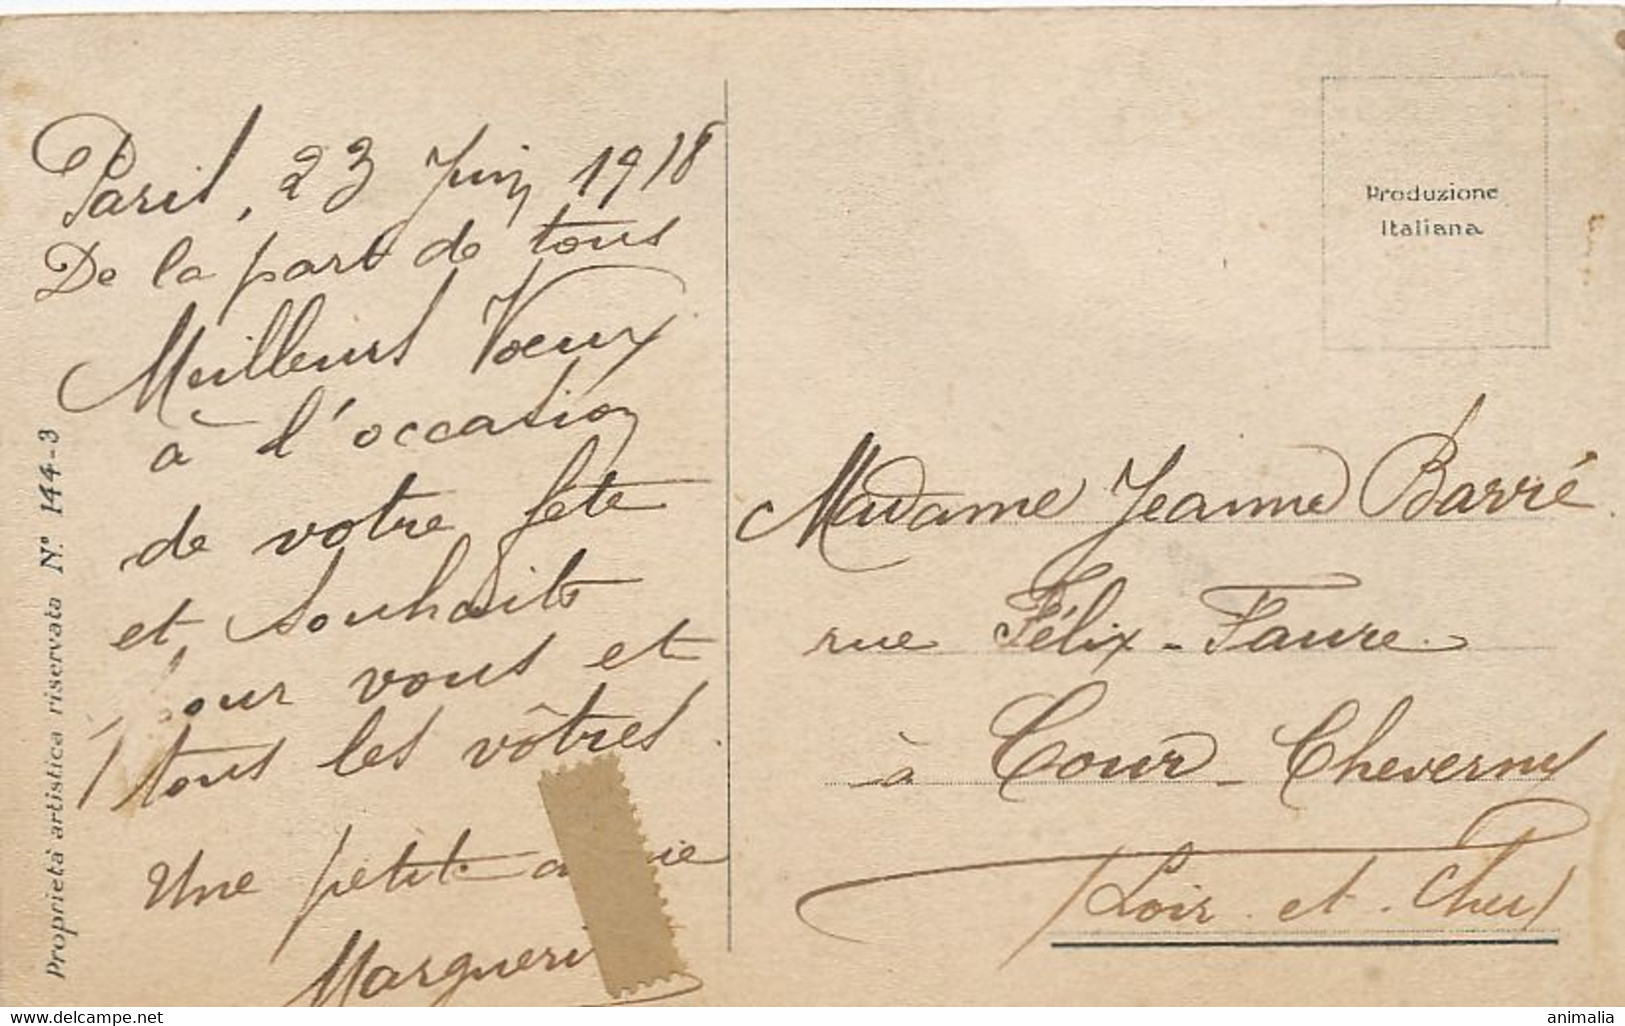 Paris, 23 Juin 1918
De la part de tous
Meilleurs Voeux
à l'occasion
de votre fête
et souhaits
pour vous et
tous les vôtres.
Une petite
Proprietà artistica riservata N.° 144-3
Produzione
Italiana
Madame Jeanne Barré
rue Félix-Faure
à Cour-Cheverny
(Loir-et-Cher)
www.delcampe.net
animalia